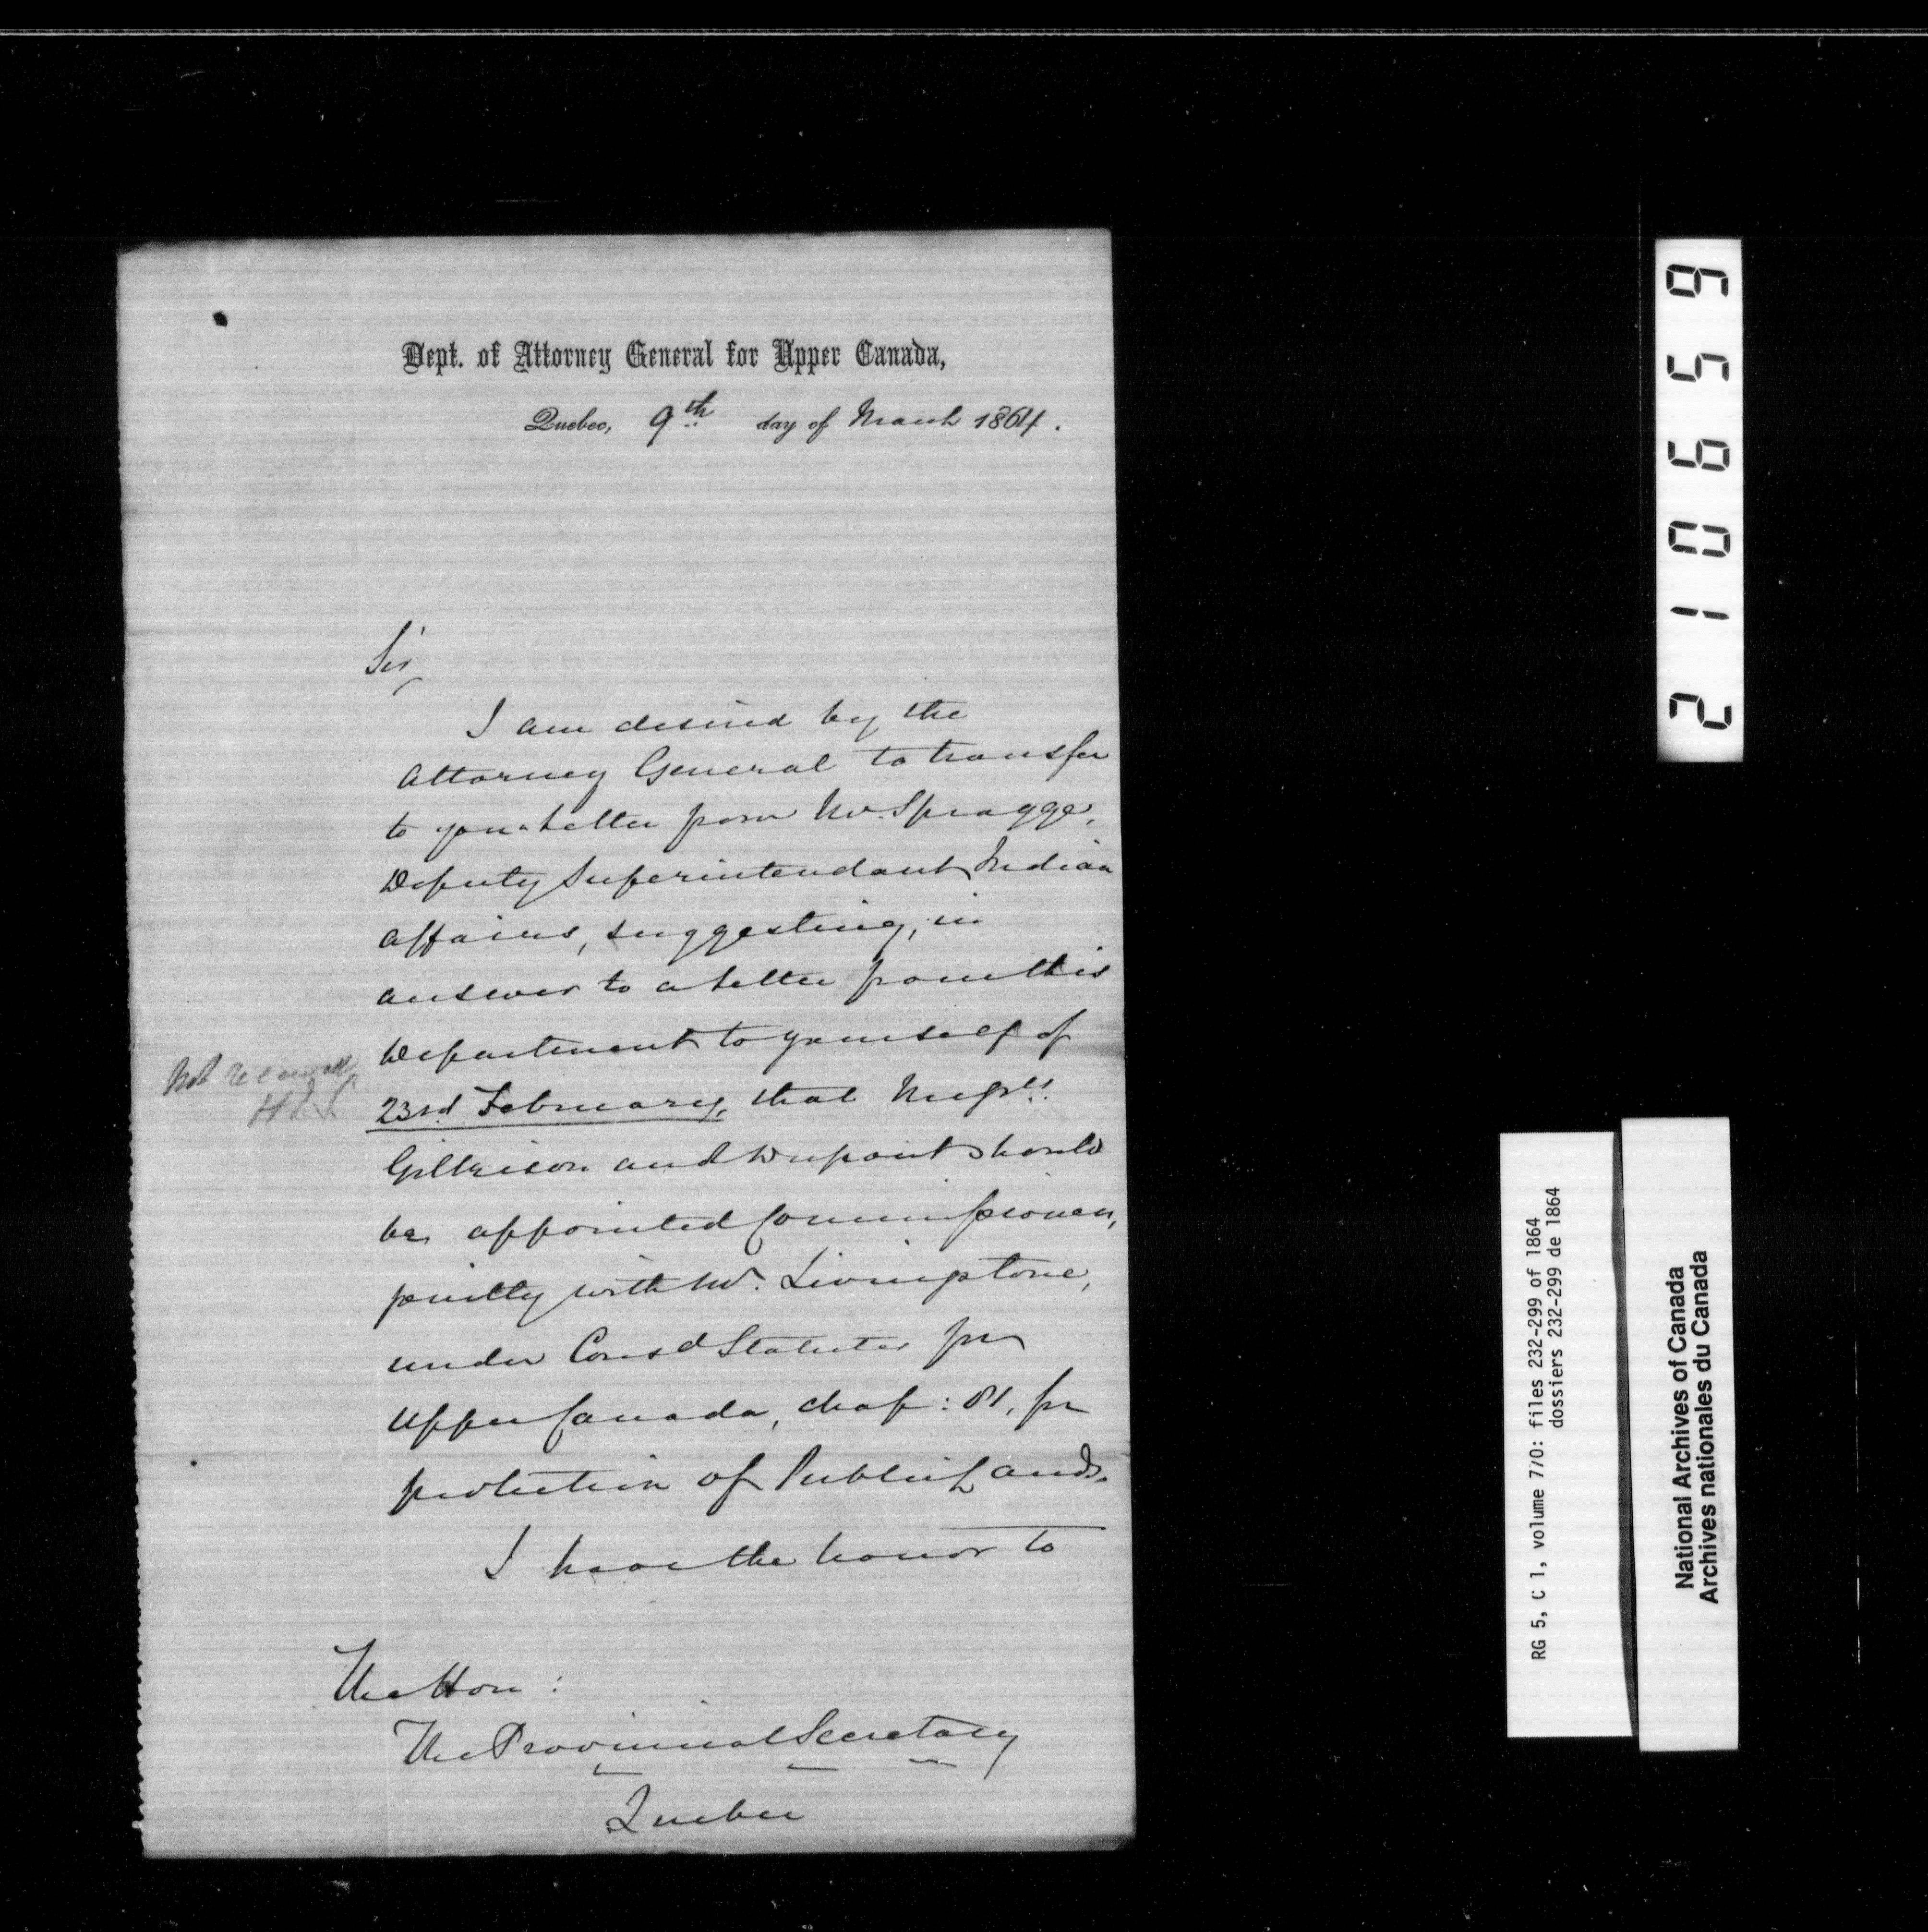 Dept. of Attorney General for Upper Canada,
Quebec, 9th day of March 1864.
Sir,
I am desired by the
Attorney General to transfer
to you a letter from Mr. Spragge,
Deputy Superintendant Indian
Affairs, suggesting, in
answer to a letter from this
Department to yourself of
Not received
23rd February, that Messrs.
Gilkison and Dupont should
be appointed Commissioners,
jointly with Mr. Livingstone,
under Consd Statutes for
Upper Canada, chap: 81, for
protection of Public Lands.
I have the honor to
The Hon:
The Provincial Secretary
Quebec
210659
RG 5, C 1, volume 770: files 232-299 of 1864
dossiers 232-299 de 1864
National Archives of Canada
Archives nationales du Canada